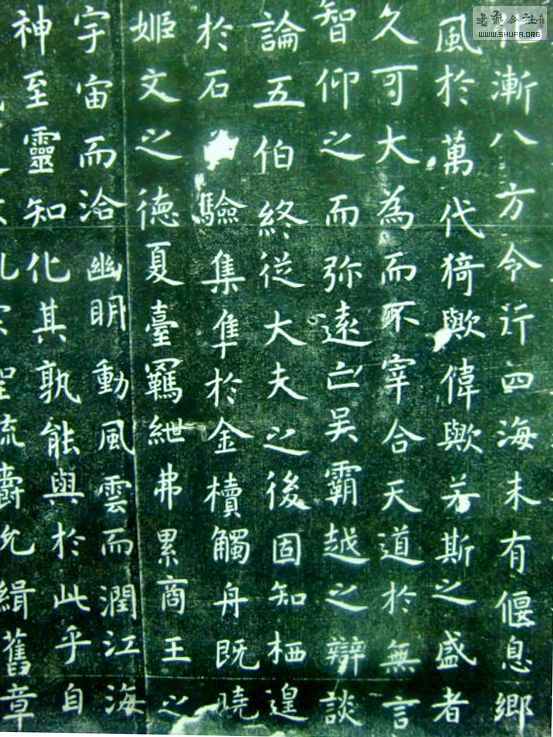 书艺公社
WWW.SHUFA.ORG
化漸八方令行四海未有偃息鄉
風於萬代猗歟偉歟若斯之盛者
久可大為而不宰合天道於無言
智仰之而弥遠亡吳霸越之辯談
論五伯終從大夫之後固知栖遑
於石驗集隼於金櫝觸舟既曉
姬文之德夏臺羈紲弗累商王之
宇宙而洽幽明動風雲而潤江海
神至靈知化其孰能與於此乎自
聖疏爵允緝舊章